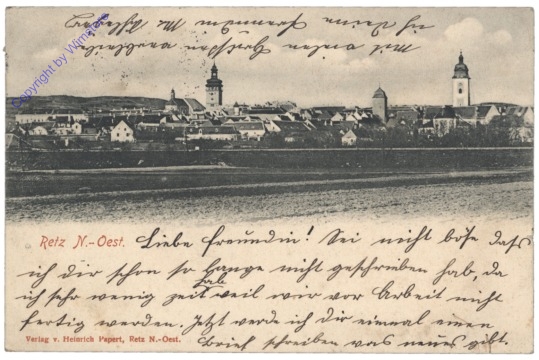 Retz N.-Oest.
Liebe Freundin! Sei nicht böse dass
ich dir schon so lange nicht geschrieben hab, da
ich sehr wenig zeit hab weil wir vor Arbeit nicht
fertig werden. Jetzt werde ich dir einmal einen
Brief schreiben was neues gibt.
Verlag v. Heinrich Papert, Retz N.-Oest.
Mit vielen Grüssen
ich deine Freundin
Copyright by